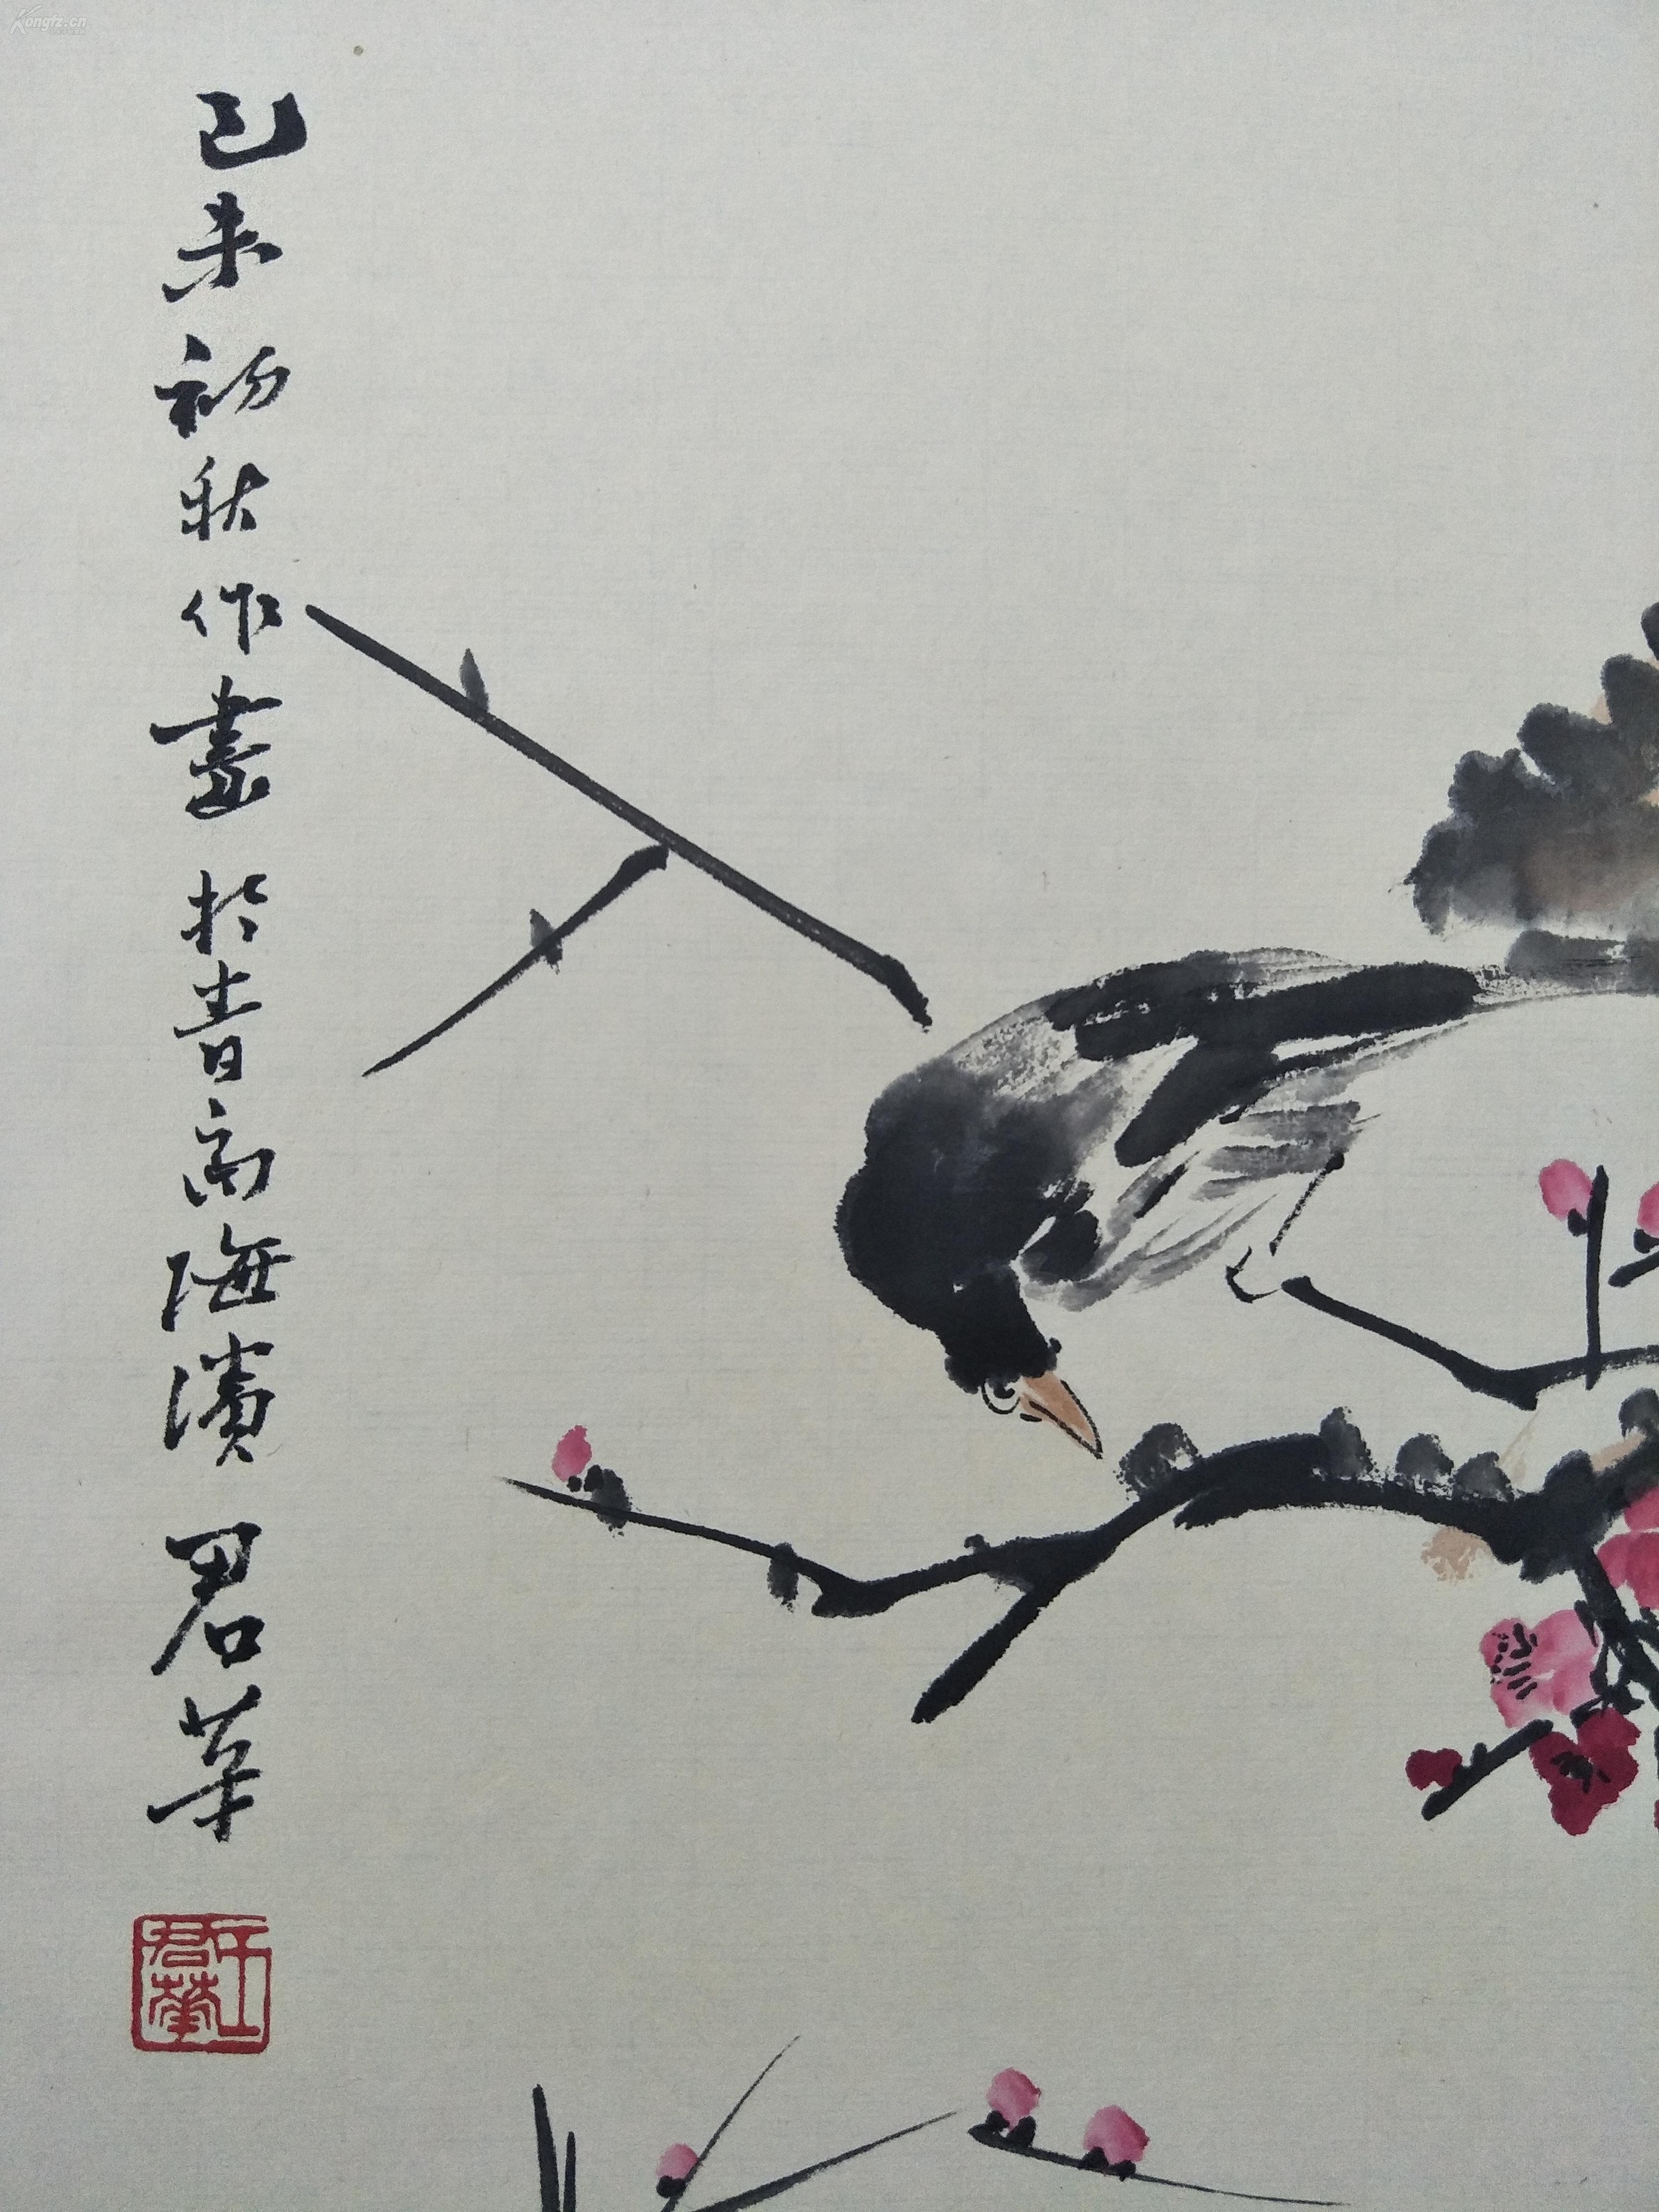 Kongfz.cn
己未初秋作畫於青島海濱 君華
王君華